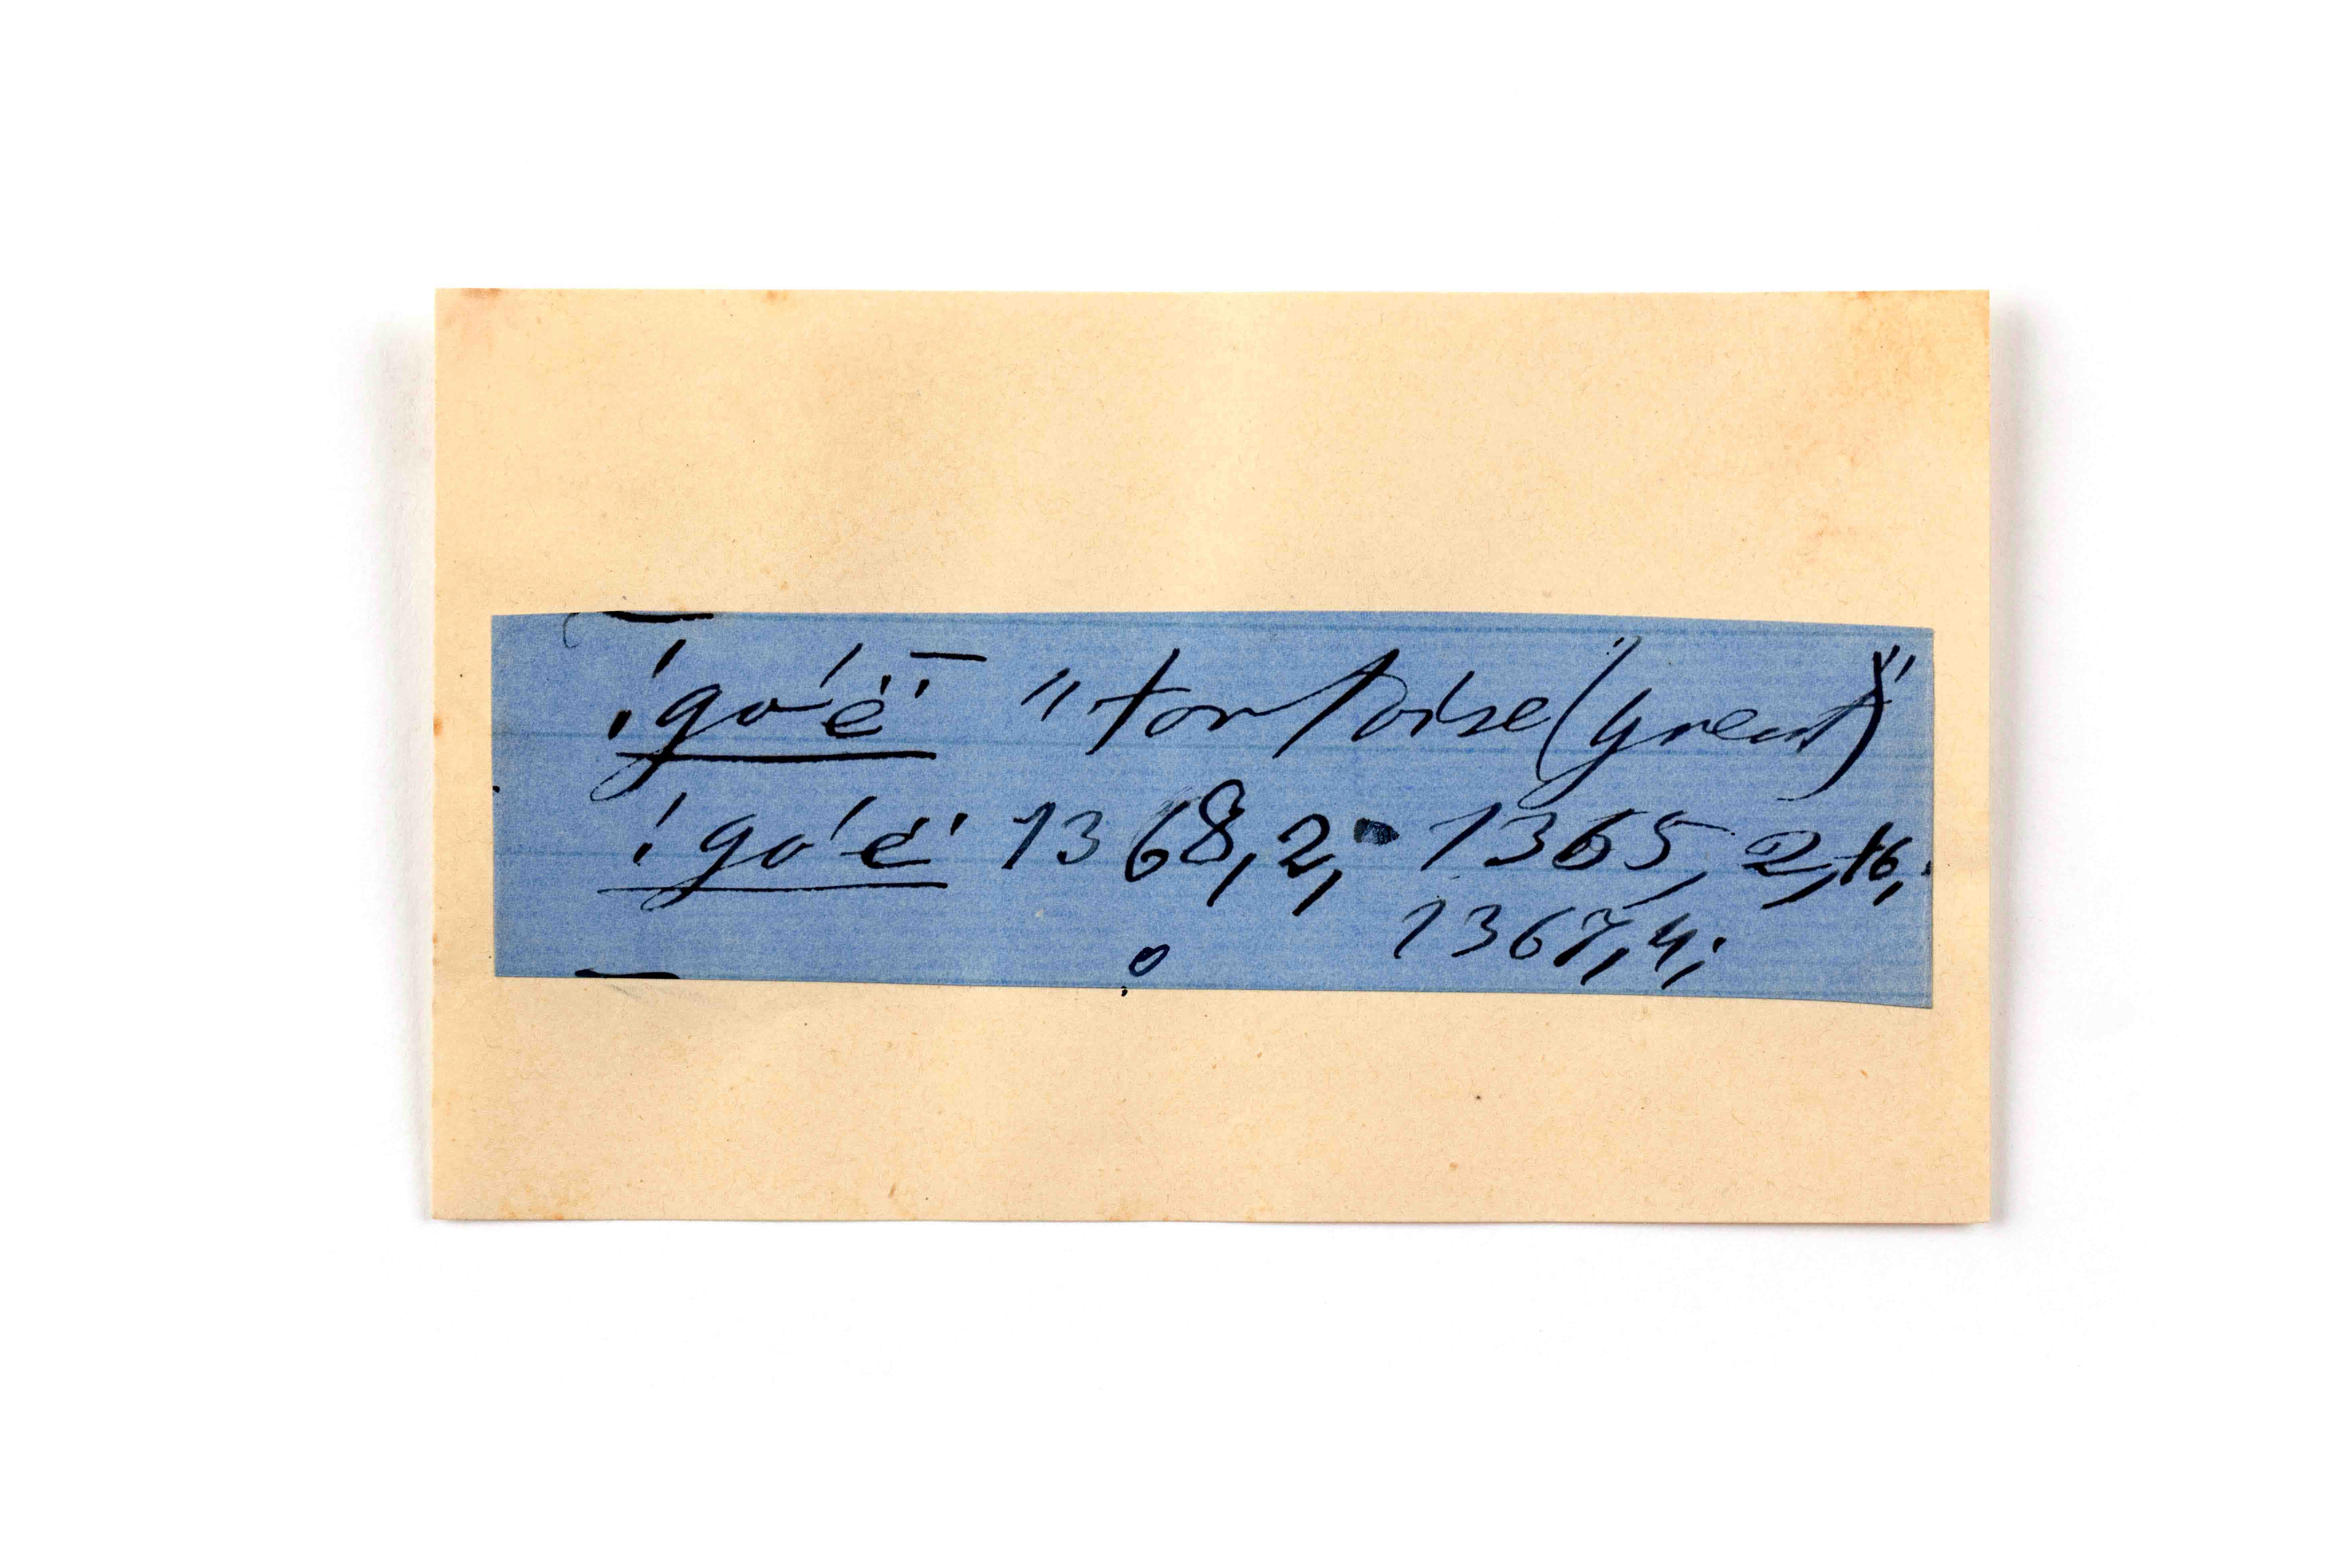 ǃgóë̄ "tortoise (great)"
ǃgóë 1368,2, 1365,2,+6,
1367,4;